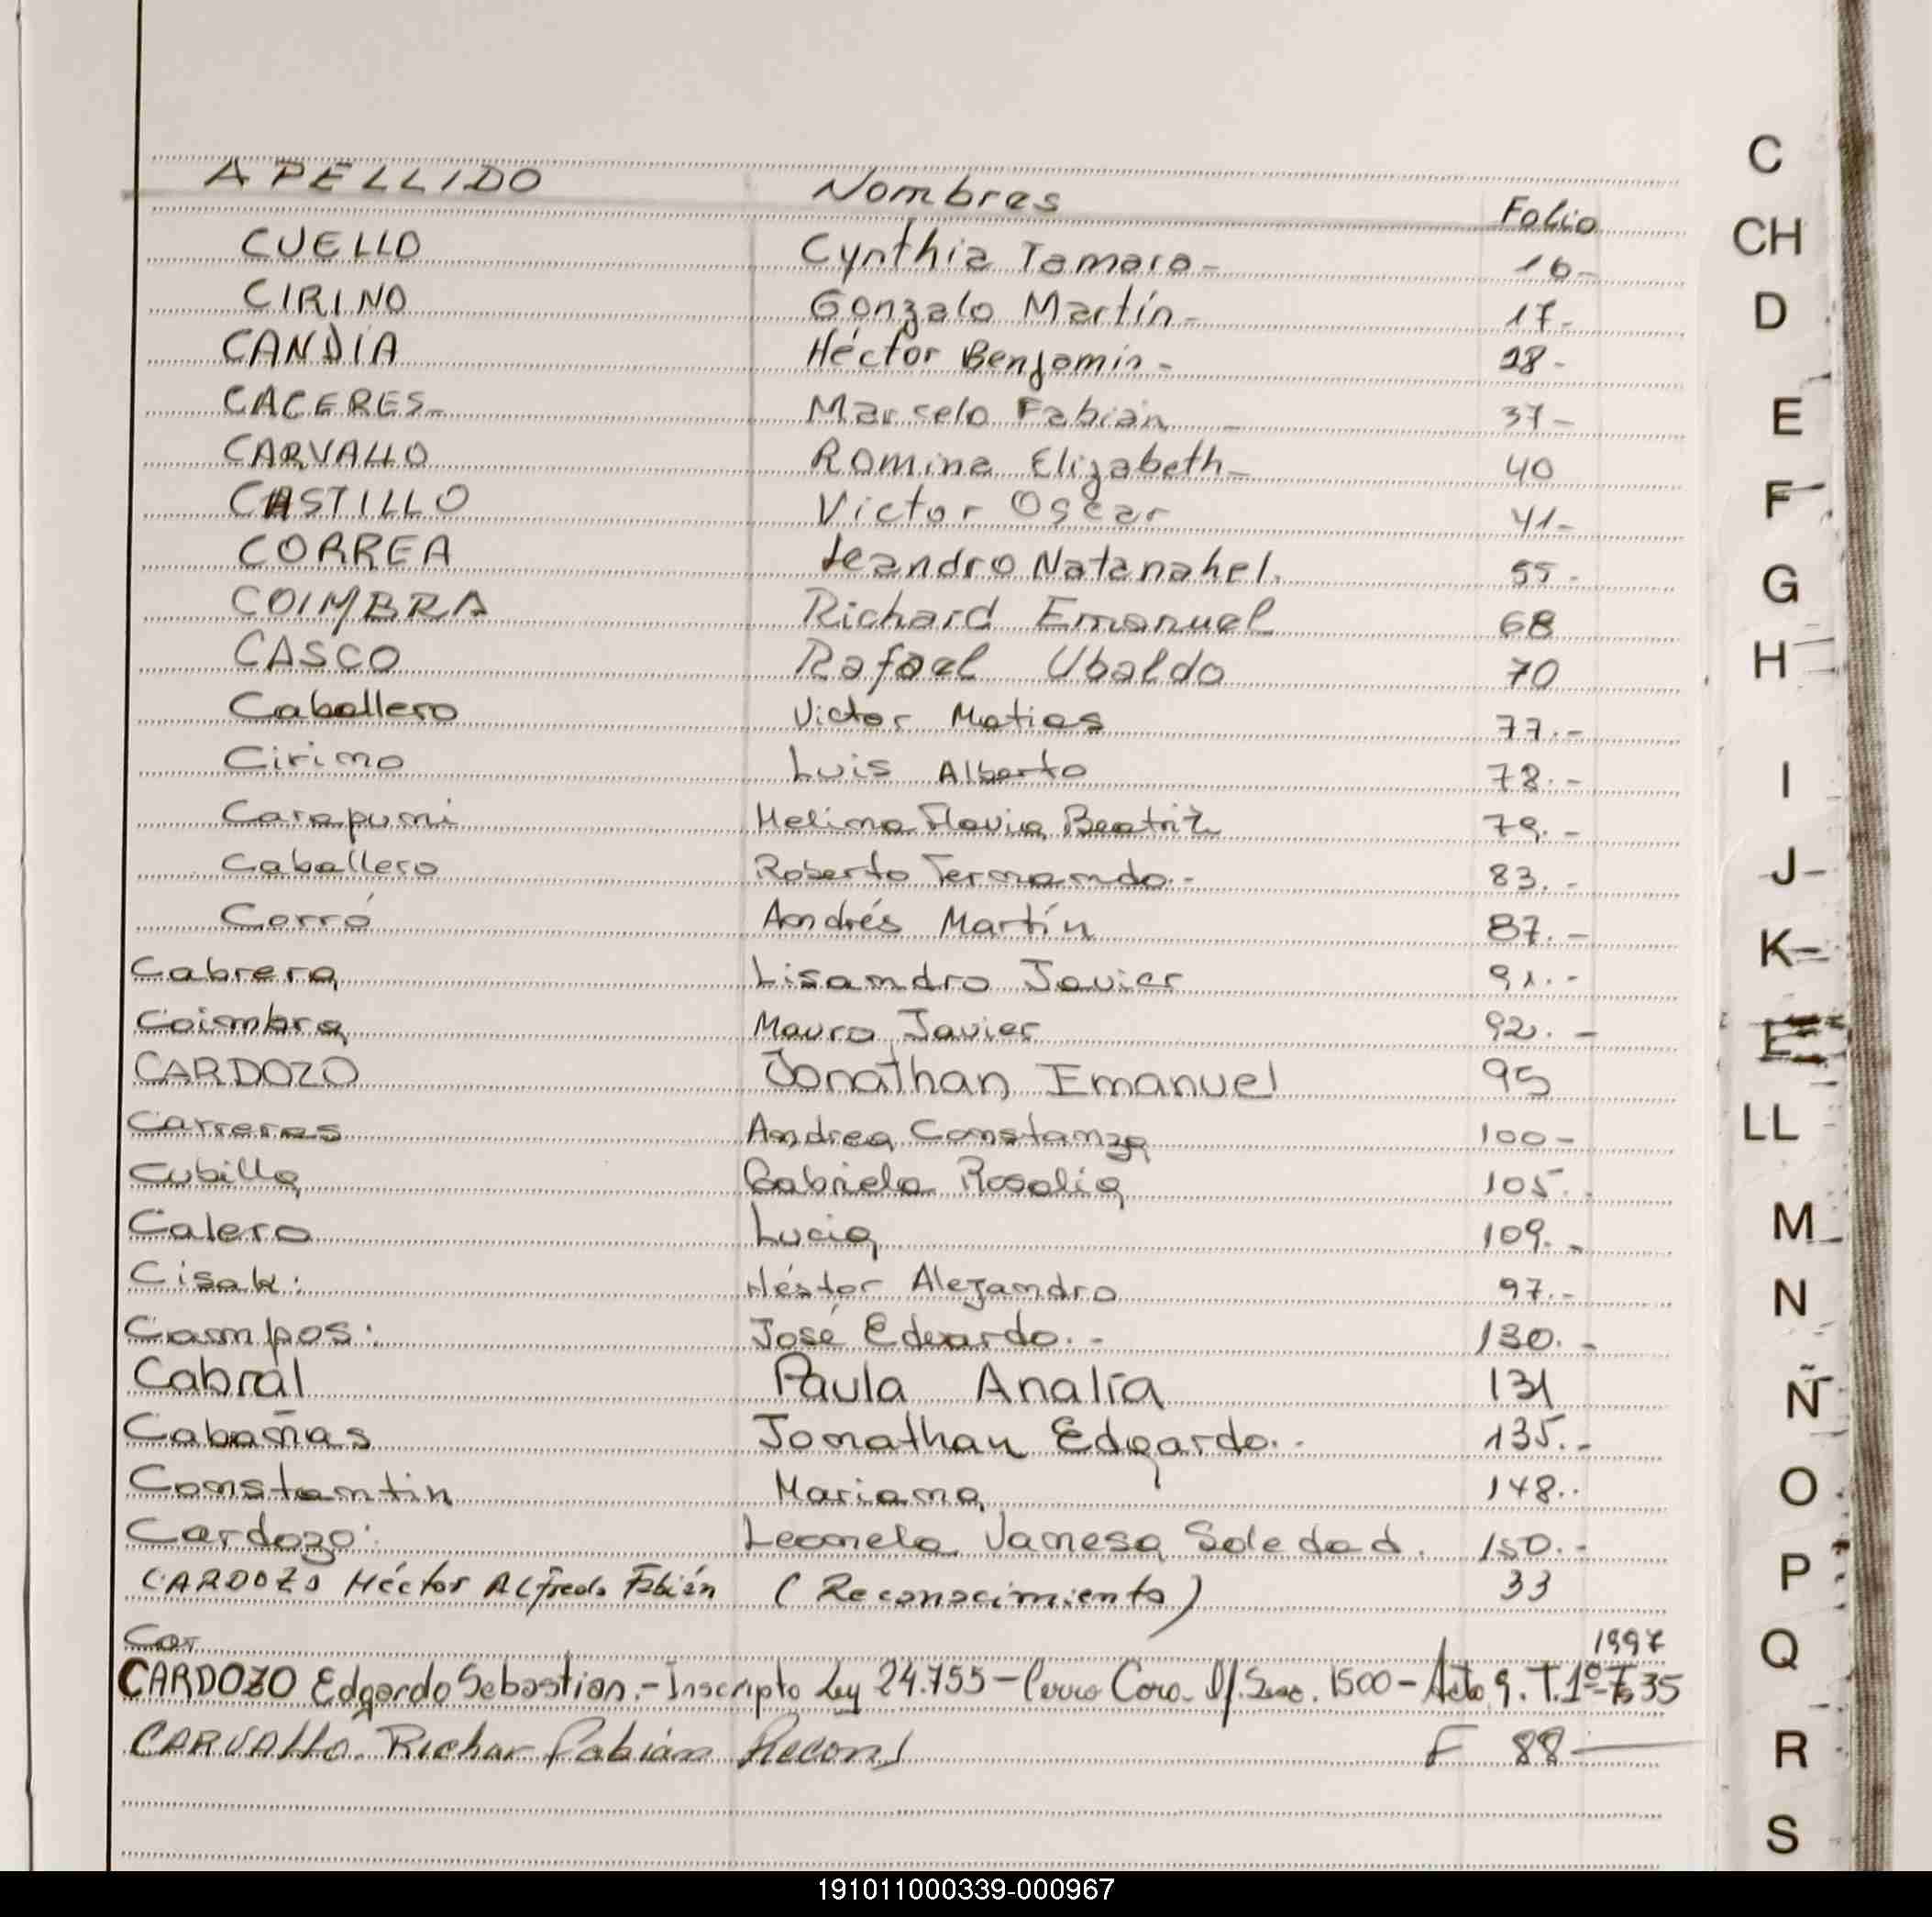 APELLIDO Nombres Folio
CUELLO Cynthia Tamara- 16-
CIRINO Gonzalo Martín- 17-
CANDIA Héctor Benjamín- 28-
CACERES- Marcelo Fabián - 37-
CARVALLO Romina Elizabeth- 40
CASTILLO Victor Oscar 41-
CORREA Leandro Natanahel. 55-
COIMBRA Richard Emanuel 68
CASCO Rafael Ubaldo 70
Caballero Victor Matias 77.-
Cirino Luis Alberto 78.-
Carapuni Melina Flavia Beatriz 79.-
Caballero Roberto Fernando.- 83.-
Corró Andrés Martín 87.-
Cabrera Lisandro Javier 91.-
Coimbra Mauro Javier 92.-
CARDOZO Jonathan Emanuel 95
Carreras Andrea Constanza 100-
Cubilla Gabriela Rosalia 105.
Calero Lucia 109.-
Cisak: Néstor Alejandro 97.-
Campos: José Eduardo.- 130.-
Cabral Paula Analía 131
Cabañas Jonathan Edgardo.- 135.-
Constantin Mariana 148..
Cardozo: Leonela Vanesa Soledad. 150.-
CARDOZO Héctor Alfredo Fabián (Reconocimiento) 33
Car
1997
CARDOZO Edgardo Sebastian.- Inscripto Ley 24.755 - Cerro Cora. 1500 - Acta 9. T.1º- Fº 35
CARVALLO. Richar Fabián Recon/ F 88-
C
CH
D
E
F
G
H
I
J
K
L
LL
M
N
Ñ
O
P
Q
R
S
191011000339-000967